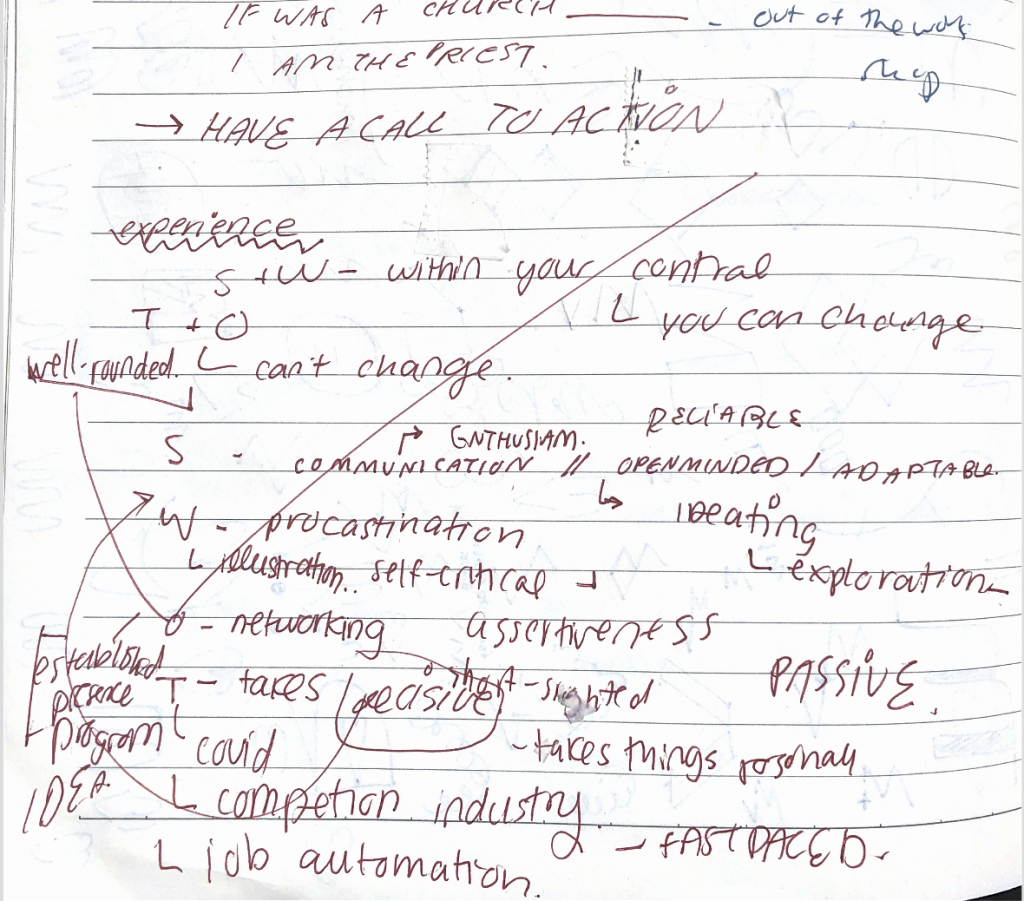 IF WAS A CHURCH ———— - out of the work
I AM THE PRIEST. shop
→ HAVE A CALL TO ACTION
experience
S + W - within your control
T + O └ you can change.
well-rounded. └ can't change.
RELIABLE
S - ↱ ENTHUSIAM.
COMMUNICATION // OPENMINDED / ADAPTABLE.
W - procastination ↳ ideating
└ illustration.. self-critical └ exploration
O - networking assertiveness
established
presence
program
IDEA
T - takes decisive short-sighted PASSIVE.
└ covid - takes things
└ competion industry
& - FAST PACED.
└ job automation.